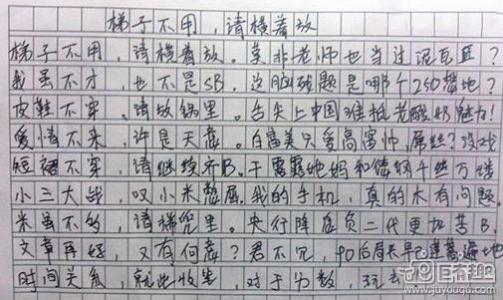 梯子不用，请横着放
梯子不用，请横着放。莫非老师也当过泥瓦匠？
我虽不才，也不是SB，这脑残题是哪个250想地？
皮鞋不穿，请放锅里。舌尖上中国难抵老酸奶魅力！
爱情不来，许是天意。白富美只爱高富帅，屌丝？没戏
短裙不穿，请继续齐B。干露露她妈和
小三大战，叹小米憋屈。我的手机，真的木有问题
米虽不多，请梯兜里。央行降息负二代更加苦B。
文章再好，又有何意？君不见，90后
时间关系，就此收笔，对于分数，
www.juyouqu.com